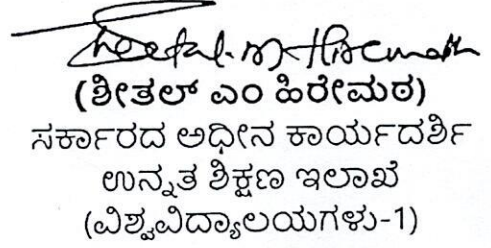 Sheetal. M. Hiremath
(ಶೀತಲ್ ಎಂ ಹಿರೇಮಠ)
ಸರ್ಕಾರದ ಅಧೀನ ಕಾರ್ಯದರ್ಶಿ
ಉನ್ನತ ಶಿಕ್ಷಣ ಇಲಾಖೆ
(ವಿಶ್ವವಿದ್ಯಾಲಯಗಳು-1)